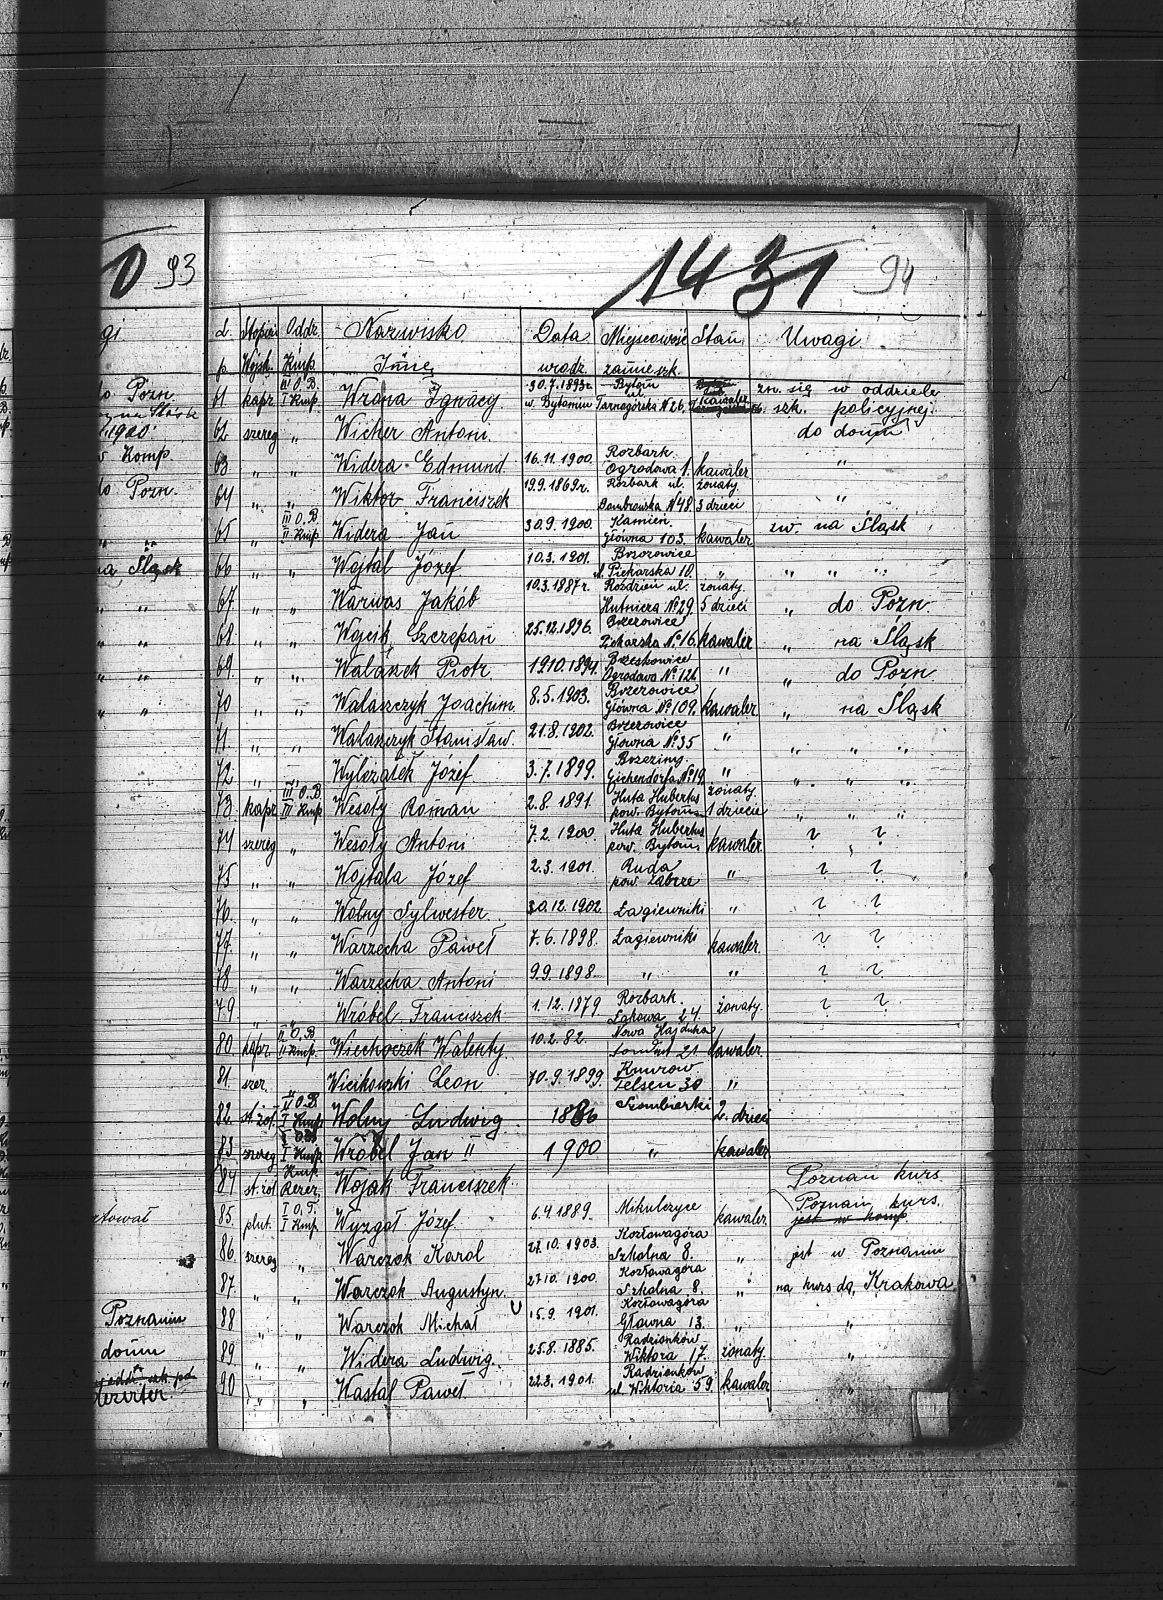 93
1431
94
gi
L. Stopień Oddz. Nazwisko Data Miejscowość Stan Uwagi
p. Wojsk. i Kmp. Imię urodz. zamieszk.
61 kapr III O.B. I Kmp. Wrona Ignacy 30.7.1893r. w. Bytomiu Bytom ul. Tarnagórska № 26. kawaler zn. się w oddziele szk. policyjnej.
62 szereg " Wicher Antoni. do domu
63 " " Widera Edmund 16.11.1900. Rozbark. Ogrodowa 1. kawaler "
64 " " Wiktor Franciszek 19.9.1869r. Rozbark ul. Dombrowska № 48 żonaty 3 dzieci "
65 " III O.B. II Kmp Widera Jan 30.9.1900. Kamien. główna 103. kawaler zw. na Śląsk
66 " " Wojtal Józef 10.3.1901. Brzozowice ul. Piekarska 10. " " " "
67 " " Karwas Jakób 10.3.1887r. Rozdzień ul. Hutnicza № 29 żonaty. 5 dzieci " do Pozn.
68 " " Wojcik Szczepan 25.12.1896. Brzezowice Piekarska № 16. kawaler " na Śląsk
69 " " Walasek Piotr 19.10.1894. Brzeskowice Ogrodowa № 126 " " do Pozn
70 " " Walaszczyk Joachim. 8.5.1903. Brzezowice Główna № 109. kawaler " na Śląsk
71 " " Walaszczyk Stanisław. 21.8.1902. Brzezowice Główna № 35 " " " "
72 " " Wylezałek Józef 3.7.1899. № 19 " " " "
73 kapr III O.B III Kmp Wesoły Roman 2.8.1891. Huta Hubertus pow. Bytom żonaty 1 dziecie " " "
74 szereg " Wesoły Antoni 7.2.1900 Huta Hubertus pow. Bytom kawaler ? ?
75 " " Wojtala Józef 2.3.1901. Ruda pow. Zabrze " ? ?
76 " " Wolny Sylwester 30.12.1902 Łagiewniki " ? ?
77 " " Warzecha Paweł 7.6.1898. Łagiewniki kawaler. ? ?
78 " " Warzecha Antoni 9.9.1898. " " ? ?
79 " " Wróbel Franciszek 1.12.1879 Rozbark. Łąkowa 24. żonaty. ? ?
80. kapr. II O.B. II Kmp. Wiechoczek Walenty. 10.2.82. Nowa Hajduka 21 kawaler
81. szer. Wicikowski Leon 70.9.1899. Knurow Felsen 30 "
82. I Kmp Wolny Ludwig. 1886 Szombierki 2. dzieci
83. szereg I Kmp Wróbel Jan II 1900 " kawaler
84 Kmp Rezer. Wojak Franciszek Poznan kurs
85. plut. I O.T. I Kmp Wyzgoł Józef. 6.4.1889. Mikulczyce kawaler Poznań kurs. jest w komp.
86. szereg " Warczok Karol 27.10.1903. Kozłowagóra Szkolna 8. " jest w Poznaniu
87. " " Warczok Augustyn. 27.10.1900 Kozłowagóra Szkolna 8. " na kurs do, Krakowa
88 " " Warczok Michał 15.9.1901. Kozłowagóra Główna 13. " "
89. " " Widera Ludwig. 25.8.1885. Radzionków Wiktora 17. żonaty "
90 " " Wastal Paweł 22.3.1901. Radzionków ul. Wiktoria 59. kawaler "
do Pozn.
1900
Komp.
do Pozn.
na Śląsk
Poznaniu
domu